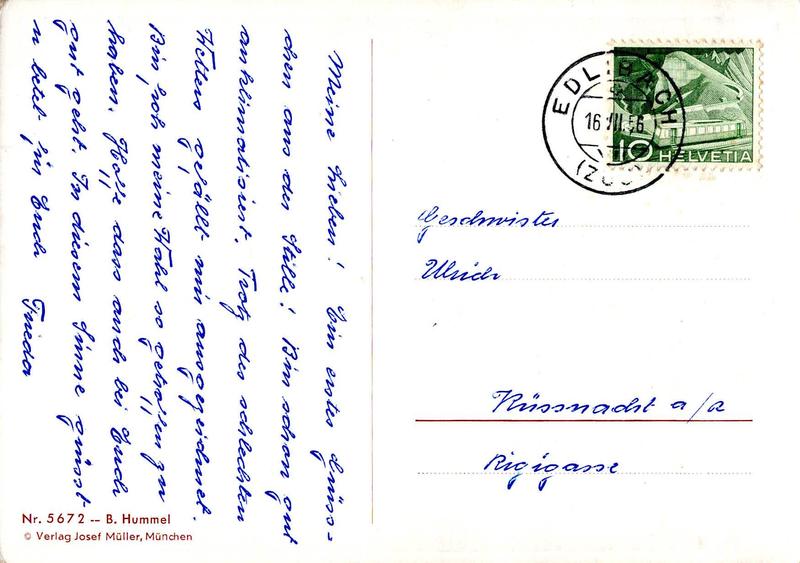 Meine Lieben! Ein erstes Grüss-
chen aus der Stille! Bin schon gut
anklimatisiert. Trotz des schlechten
Wetters gefällt mir ausgezeichnet.
Bin froh meine Wahl so getroffen zu
haben. Hoffe dass auch bei Euch
gut geht. In diesem Sinne grüsst
u betet für Euch Frieda
Nr. 5672 -- B. Hummel
© Verlag Josef Müller, München
EDLIBACH
16.VII.56
10 HELVETIA
Geschwister
Ulrich
Küssnacht a/R
Rigigasse